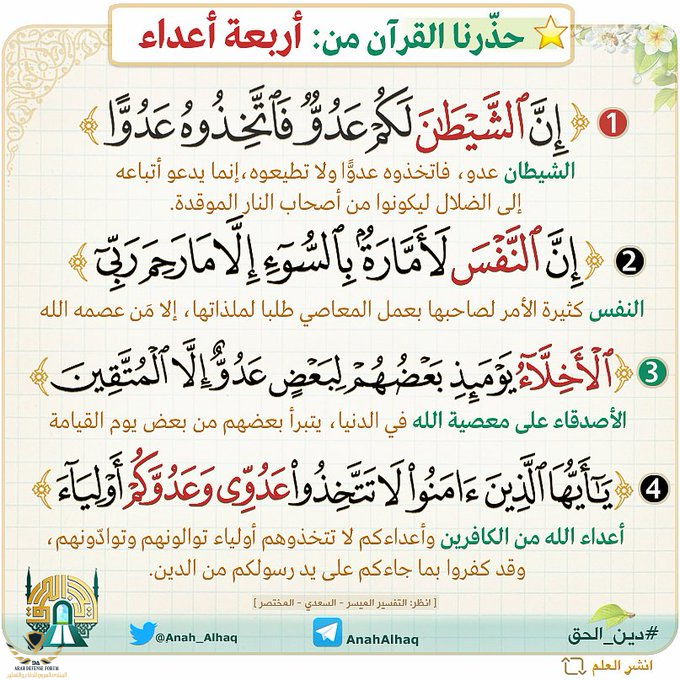 حذّرنا القرآن من: أربعة أعداء
1 ﴿إِنَّ ٱلشَّيْطَٰنَ لَكُمْ عَدُوٌّ فَٱتَّخِذُوهُ عَدُوًّا﴾
الشيطان عدو، فاتخذوه عدوًّا ولا تطيعوه،إنما يدعو أتباعه
إلى الضلال ليكونوا من أصحاب النار الموقدة.
2 ﴿إِنَّ ٱلنَّفْسَ لَأَمَّارَةٌۢ بِٱلسُّوٓءِ إِلَّا مَا رَحِمَ رَبِّىٓ﴾
النفس كثيرة الأمر لصاحبها بعمل المعاصي طلبا لملذاتها، إلا مَن عصمه الله
3 ﴿ٱلْأَخِلَّآءُ يَوْمَئِذٍۭ بَعْضُهُمْ لِبَعْضٍ عَدُوٌّ إِلَّا ٱلْمُتَّقِينَ﴾
الأصدقاء على معصية الله في الدنيا، يتبرأ بعضهم من بعض يوم القيامة
4 ﴿يَٰٓأَيُّهَا ٱلَّذِينَ ءَامَنُوا۟ لَا تَتَّخِذُوا۟ عَدُوِّى وَعَدُوَّكُمْ أَوْلِيَآءَ﴾
أعداء الله من الكافرين وأعداءكم لا تتخذوهم أولياء توالونهم وتوادّونهم،
وقد كفروا بما جاءكم على يد رسولكم من الدين.
[ انظر: التفسير الميسر - السعدي - المختصر ]
#دين_الحق
AnahAlhaq
@Anah_Alhaq
انشر العلم
ARAB DEFENSE FORUM